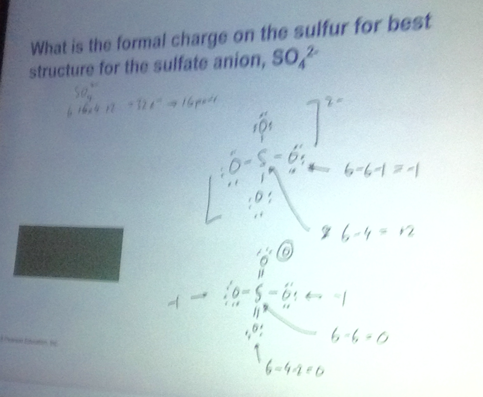 What is the formal charge on the sulfur for best
structure for the sulfate anion, SO₄²⁻
6+6×4+2 = 32e⁻ ⇒ 16 pairs
2-
:O:
:O-S-O: ← 6-6-1=-1
:O:
6-4=+2
O 0
-1 → :O-S-O: ← -1
6-6=0
:O:
6-4-2=0